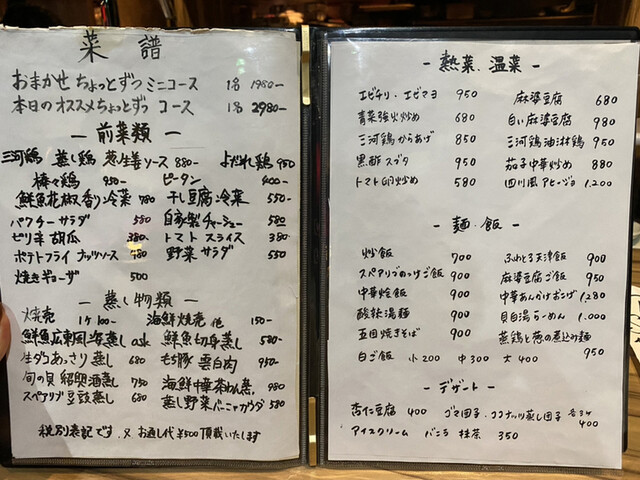 菜譜
おまかせ ちょっとずつ ミニコース 1名 1980-
本日のオススメちょっとずつ コース 1名 2980-
- 前菜類 -
三河鶏 蒸し鶏 葱生姜ソース 880- よだれ鶏 950
棒々鶏 950- ピータン 400-
鮮魚花椒香り冷菜 780 干し豆腐冷菜 550-
パクチーサラダ 580 自家製チャーシュー 580
ピリ辛胡瓜 380- トマトスライス 380-
ポテトフライ ナッツソース 480 野菜サラダ 550
焼きギョーザ 500
- 蒸し物類 -
焼売 1ケ 100- 海鮮焼売 他 150-
鮮魚広東風姿蒸し ask 鮮魚切身蒸し 580-
生ダコあっさり蒸し 680 もち豚 雲白肉 950-
旬の貝 紹興酒蒸し 750 海鮮中華茶わん蒸 980
スペアリブ豆鼓蒸し 680 蒸し野菜バーニャカウダ 580
税別表記です 又 お通し代 ¥500 頂載いたします
- 熱菜、温菜 -
エビチリ、エビマヨ 950 麻婆豆腐 680
青菜強火炒め 680 白い麻婆豆腐 980
三河鶏からあげ 850 三河鶏油淋鶏 950
黒酢スブタ 950 茄子中華炒め 880
トマト卵炒め 580 四川風アヒージョ 1.200
- 麺・飯 -
炒飯 700 ふわとろ天津飯 900
スペアリブのっけご飯 900 麻婆豆腐ご飯 950
中華烩飯 900 中華あんかけおこげ 1,280
酸辣湯麺 900 貝白湯らーめん 1.000
五目焼きそば 900 蒸鶏と葱の煮込み麺 950
白ご飯 小200 中300 大400
- デザート -
杏仁豆腐 400 ゴマ団子・ココナッツ蒸し団子 各3ケ 400
アイスクリーム バニラ 抹茶 350